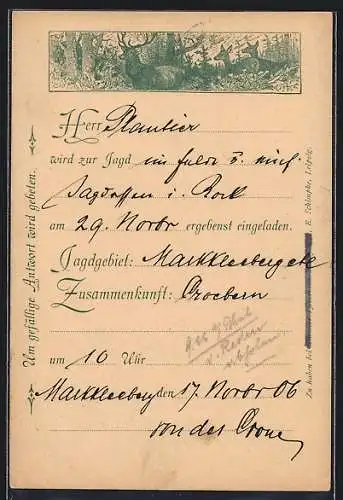 Herr Plantier
wird zur Jagd im Felde u.
Jagdessen i. Rock
am 29. Novbr ergebenst eingeladen.
Jagdgebiet: Markkleeberg etc
Zusammenkunft: Croebern
um 10 Uhr
Markkleeberg den 17. Novbr 06
von der Crone
Um gefällige Antwort wird gebeten.
Zu haben bei E. Schimpke, Leipzig.